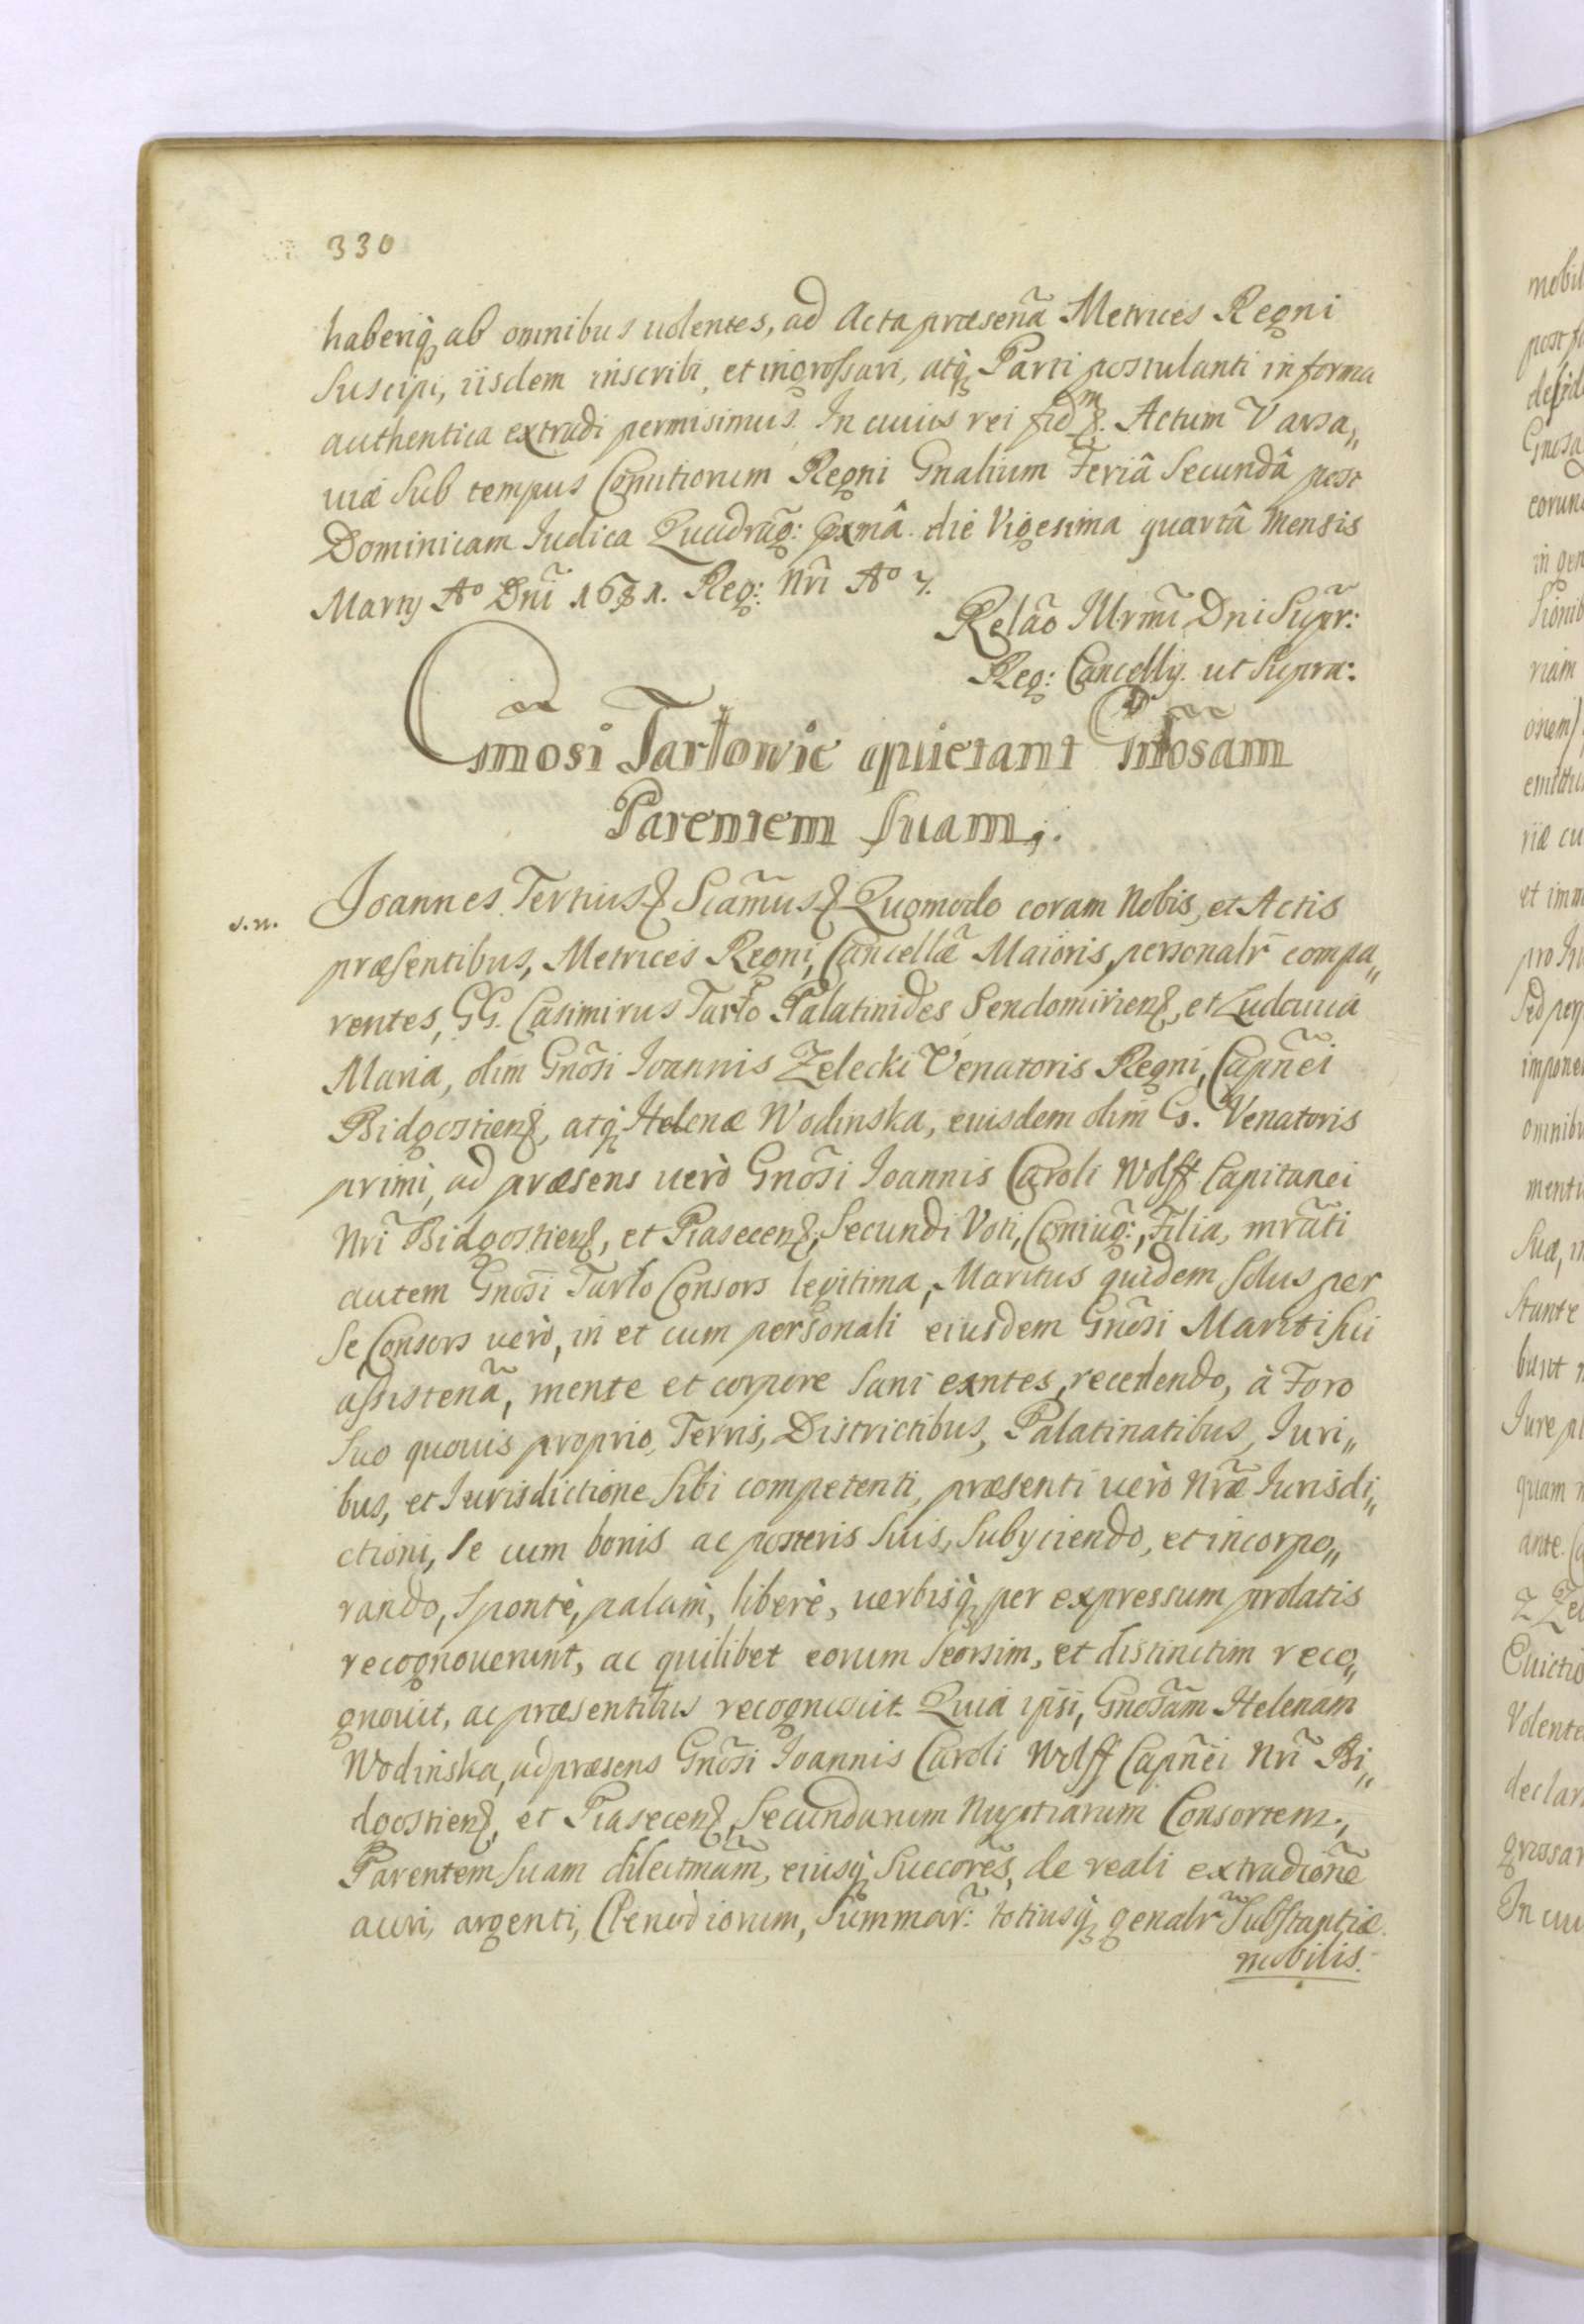 330
haberiq, ab omnibus uolentes, ad Acta præsenã Metrices Regni
Suscipi, iisdem inscribi, et ingrossari, atq, Parti postulanti in forma
authentica extradi permisimus. In cuius rei fidm &. Actum Varsa,,
uiæ Sub tempus Comitiorum Regni Gnalium Feriâ Secundâ post
Dominicam Iudica Quadrag: pxmâ die Vigesima quartâ Mensis
Marty Aº Dnĩ 1681. Reg: Nrĩ Aº 7.
Relão Illrmĩ Dni Supr:
Reg: Cancelly. ut Supra:
Gnosi Tarłowie quietant Gnosam
Parentem Suam;.
s.n. Joannes Tertius & Sciãmus & Quomodo coram Nobis, et Actis
præsentibus, Metrices Regni, Cancellæ Maioris, personalr compa,,
rentes, GG. Casimirus Tarło Palatinides Sendomirien&, et Ludouica
Maria, olim Gnõsi Ioannis Zelecki Venatoris Regni, Capñei
Bidgostien&, atq, Helenæ Wodinska, eiusdem olim G. Venatoris
primi, ad præsens uerò Gnõsi Ioannis Caroli Wolff Capitanei
Nrĩ Bidgostien&, et Piasecen&, Secundi Voti, Coniug:, Filia, mrãti
autem Gnosĩ Tarło Consors legitima, Maritus quidem Solus per
Se Consors uerò, in et cum personali eiusdem Gnõsi Mariti Sui
assistenã, mente et corpore Sani exntes, recedendo, à Foro
Suo quouis proprio, Terris, Districtibus, Palatinatibus, Iuri,,
bus, et Iurisdictione Sibi competenti, præsenti uerò Nræ Iurisdi,,
ctioni, Se cum bonis ac posteris Suis, Subyciendo, et incorpo,,
rando, Spontè, palàm, liberè, uerbisq, per expressum prolatis
recognouerunt, ac quilibet eorum Seorsim, et distinctim reco,,
gnouit, ac præsentibus recognoscit. Quia ipsi, Gnosãm Helenam
Wodinska, ad præsens Gnõsi Ioannis Caroli Wolff Capñei Nrĩ Bi,,
dgostien&, et Piasecen&, Secundarum Nuptiarum Consortem,
Parentem Suam dilectmãm, eiusq, Succorẽs, de reali extradionẽ
auri, argenti, Clenodiorum, Summar: totiusq, genalr Substantiæ
mobilis.